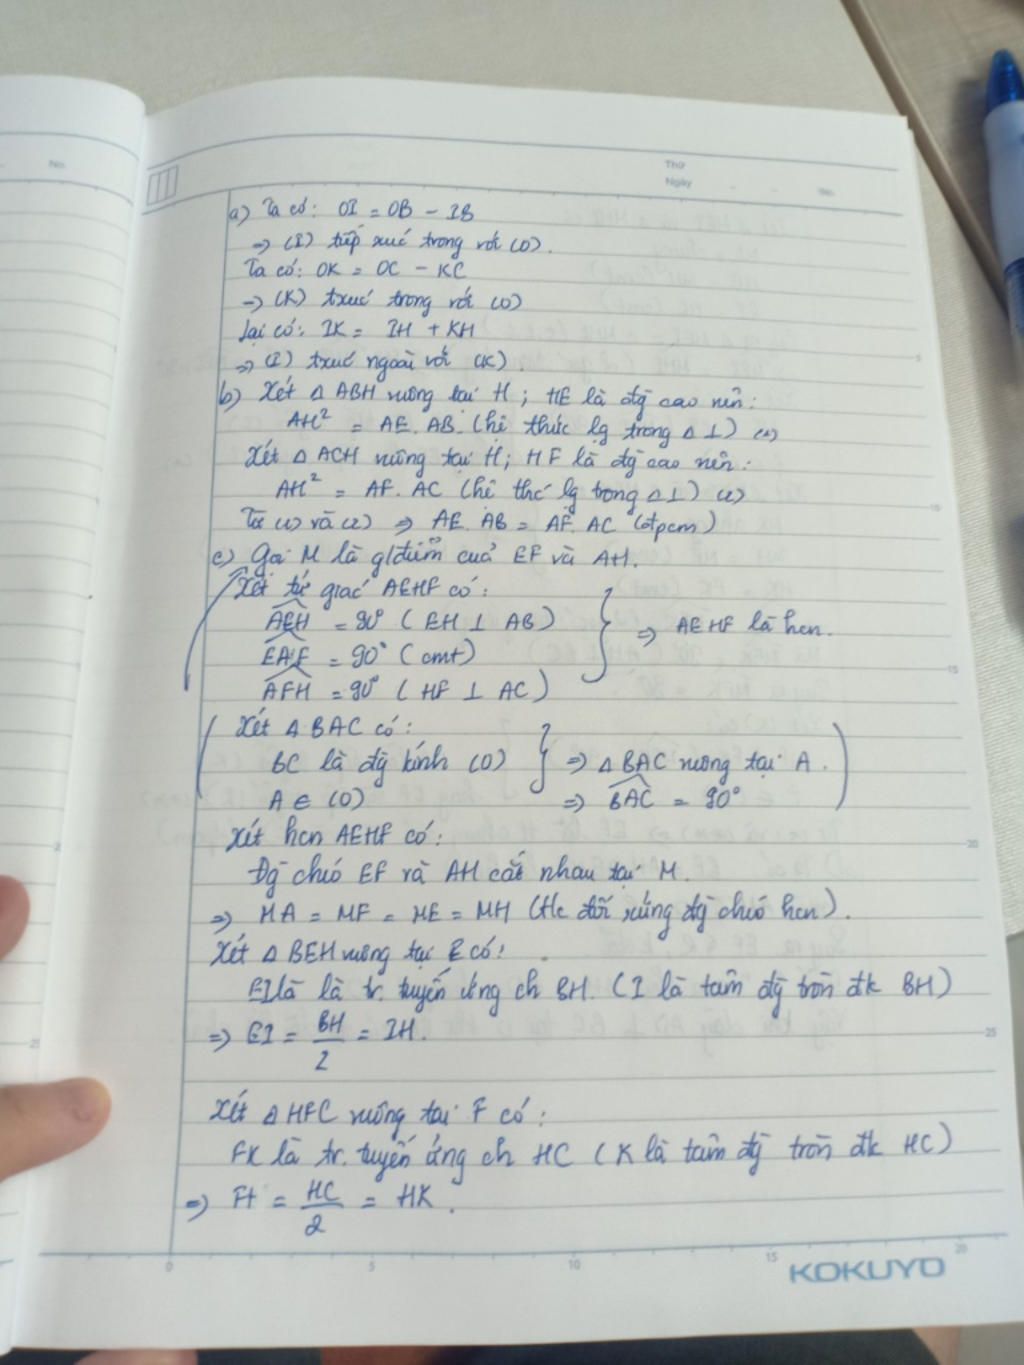 No.
Thứ
Ngày
No.
a) Ta có: OI = OB - IB
=> (I) tiếp xúc trong với (O).
Ta có: OK = OC - KC
=> (K) txúc trong với (O)
Lại có: IK = IH + KH
=> (I) txúc ngoài với (K).
b) Xét Δ ABH vuông tại H ; HE là đg cao nên:
AH² = AE. AB. (hê thức lg trong Δ ⊥) (1)
Xét Δ ACH vuông tại H; HF là đg cao nên:
AH² = AF. AC (hê thc lg trong Δ⊥) (2)
Từ (1) và (2) => AE. AB = AF. AC (đpcm)
c) Gọi M là g/điểm của EF và AH.
Xét tứ giác AEHF có:
AEH = 90° ( EH ⊥ AB)
EAF = 90° ( cmt)
AFH = 90° ( HF ⊥ AC)
=> AEHF là hcn.
Xét Δ BAC có:
BC là đg kính (O)
A ∈ (O)
=> Δ BAC vuông tại A.
=> BAC = 90°
Xét hcn AEHF có:
Đg chéo EF và AH cắt nhau tại M.
=> MA = MF = ME = MH (t/c đối xứng đg chéo hcn).
Xét Δ BEH vuông tại E có:
EI là là tr. tuyến ứng ch BH. (I là tâm đg tròn đk BH)
=> EI = BH/2 = IH.
Xét Δ HFC vuông tại F có:
FK là tr. tuyến ứng ch HC (K là tâm đg tròn đk HC)
=> = HC/2 = HK.
0 5 10 15 20
KOKUYO